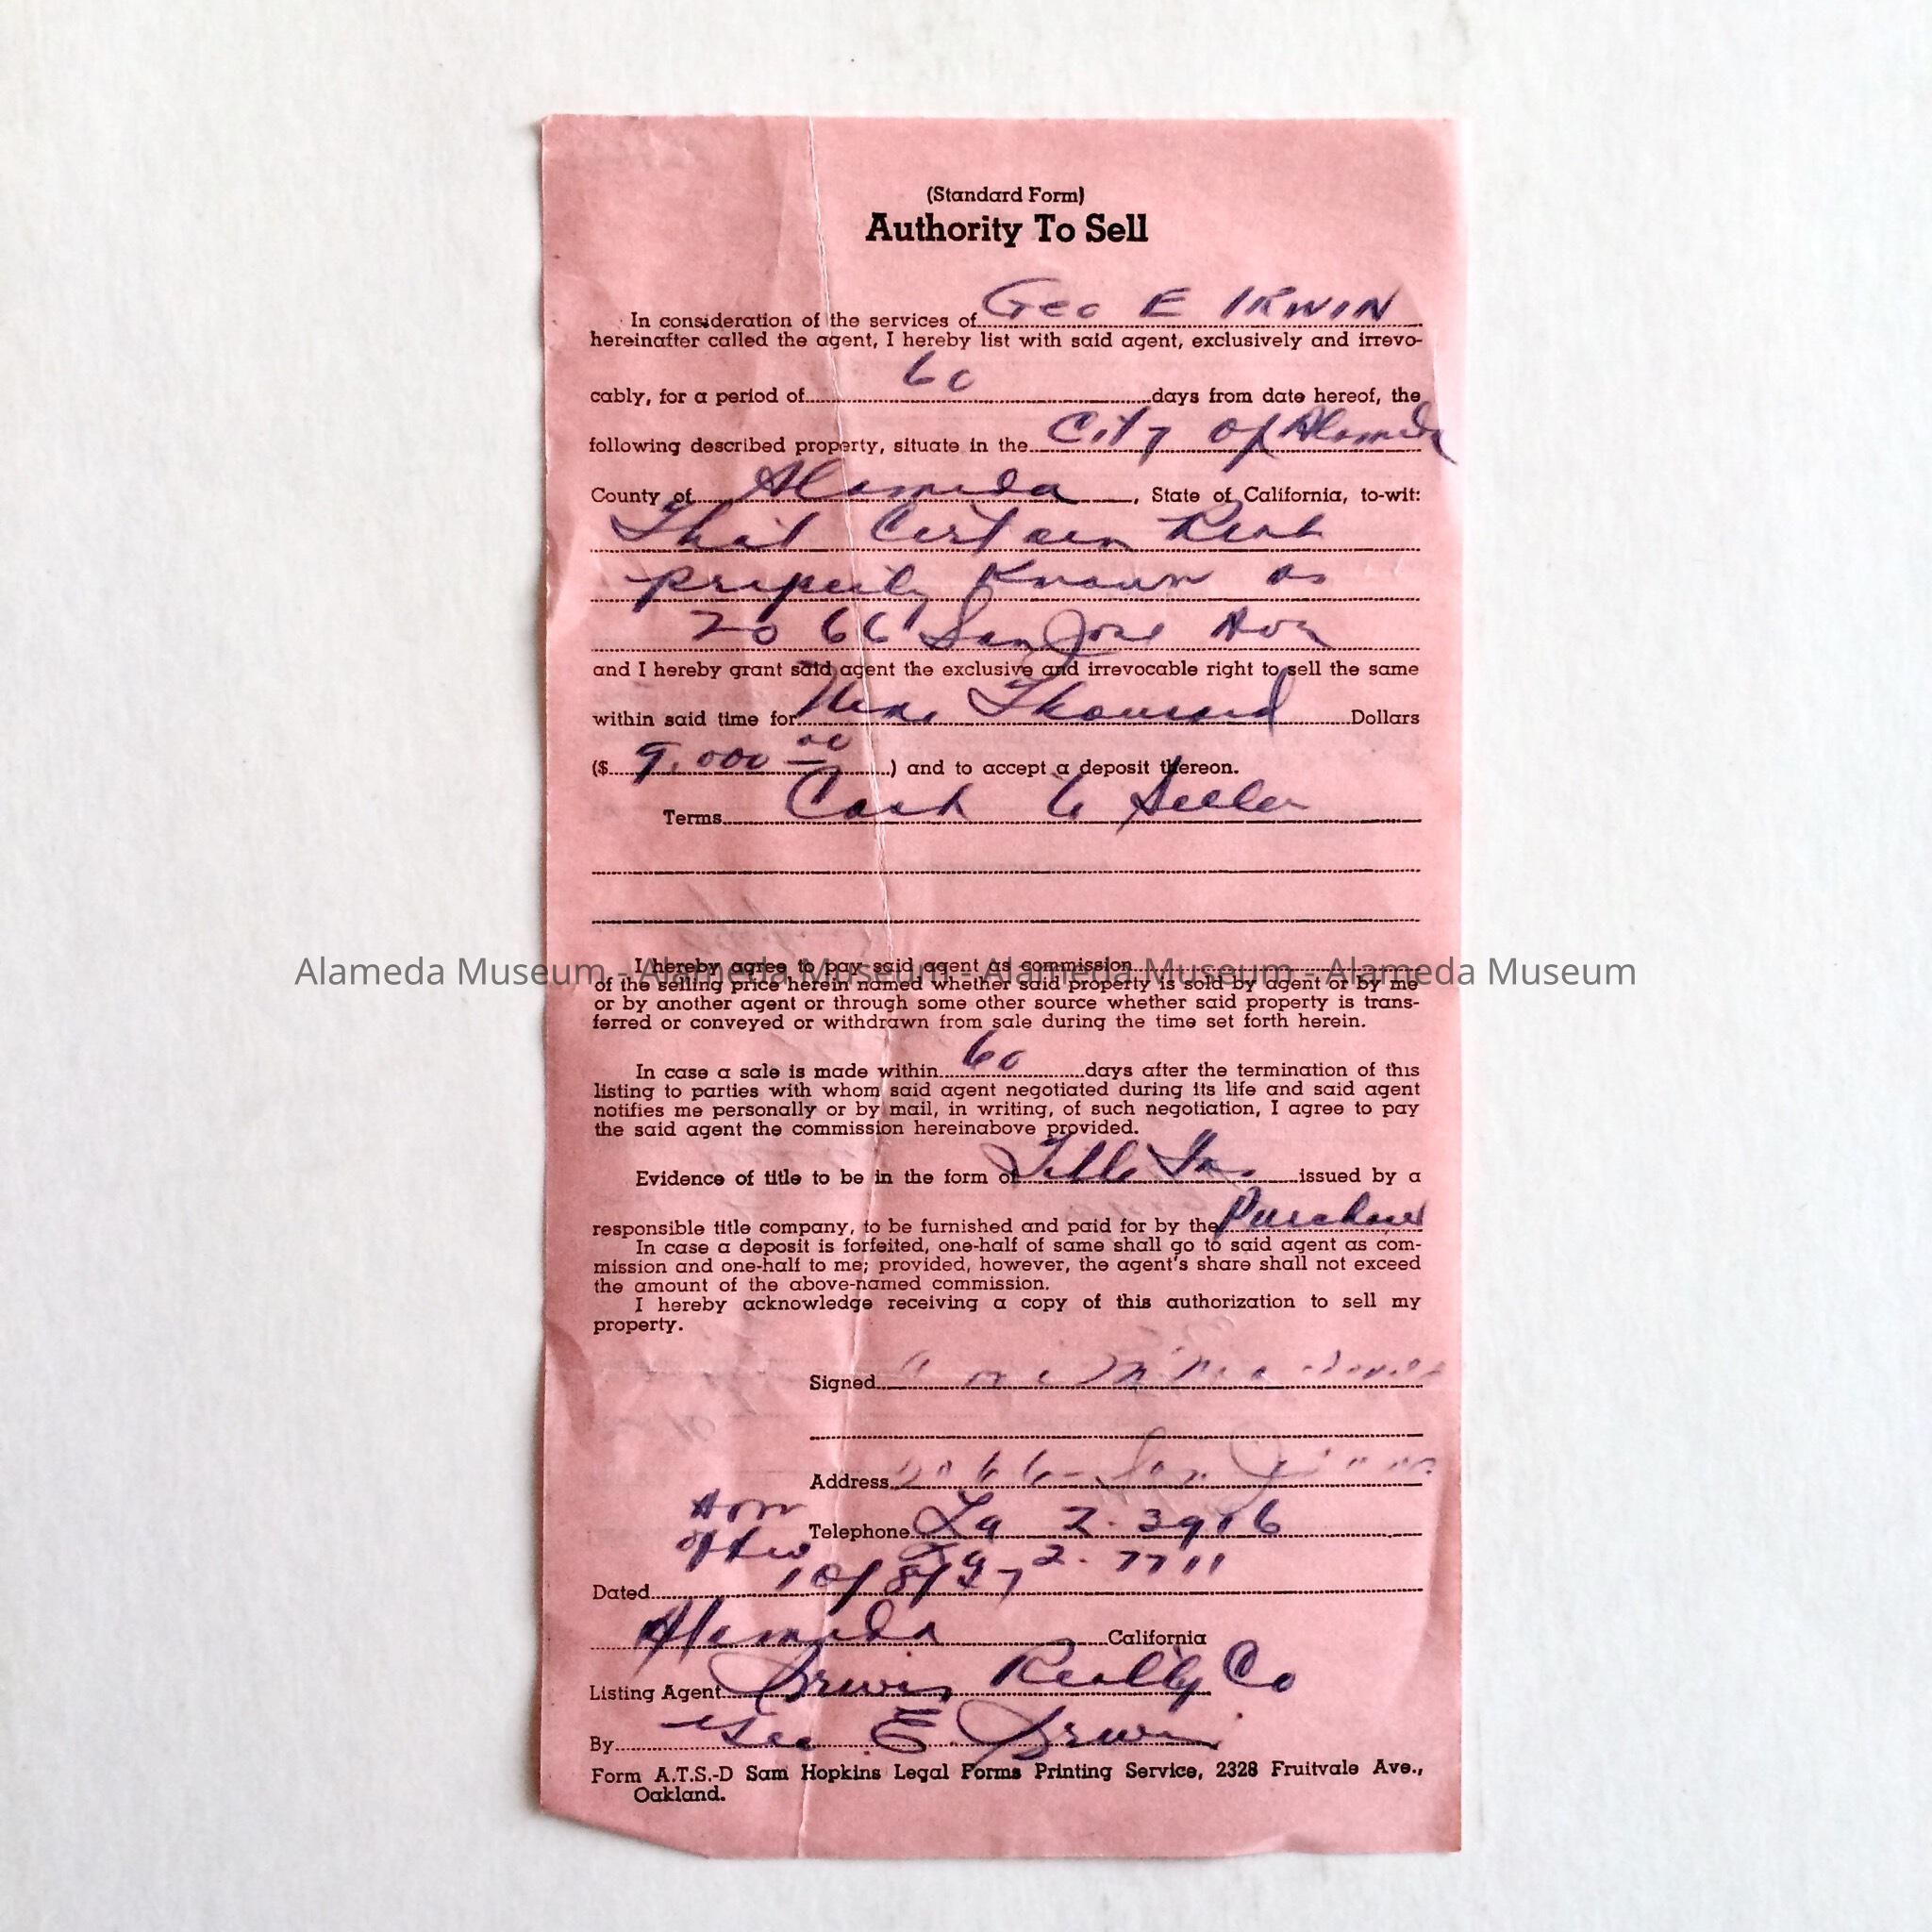 (Standard Form)
Authority To Sell
In consideration of the services of Geo E IRWIN
hereinafter called the agent, I hereby list with said agent, exclusively and irrevo-
cably, for a period of 60 days from date hereof, the
following described property, situate in the City of Alameda
County of Alameda, State of California, to-wit:
That Certain Real
property Known as
2066 San Jose Ave
and I hereby grant said agent the exclusive and irrevocable right to sell the same
within said time for Nine Thousand Dollars
($ 9,000 00) and to accept a deposit thereon.
Terms Cash to Seller
Alameda Museum - Alameda Museum - Alameda Museum - Alameda Museum
I hereby agree to pay said agent as commission
of the selling price herein named whether said property is sold by agent or by me
or by another agent or through some other source whether said property is trans-
ferred or conveyed or withdrawn from sale during the time set forth herein.
In case a sale is made within 60 days after the termination of this
listing to parties with whom said agent negotiated during its life and said agent
notifies me personally or by mail, in writing, of such negotiation, I agree to pay
the said agent the commission hereinabove provided.
Evidence of title to be in the form of Title Ins issued by a
responsible title company, to be furnished and paid for by the Purchaser
In case a deposit is forfeited, one-half of same shall go to said agent as com-
mission and one-half to me; provided, however, the agent's share shall not exceed
the amount of the above-named commission.
I hereby acknowledge receiving a copy of this authorization to sell my
property.
Signed
Address 2066 San
Telephone La 2-3906
office La 2-7711
Dated 10/8/
Alameda California
Listing Agent Irwin Realty Co
By Geo E Irwin
Form A.T.S.-D Sam Hopkins Legal Forms Printing Service, 2328 Fruitvale Ave.,
Oakland.